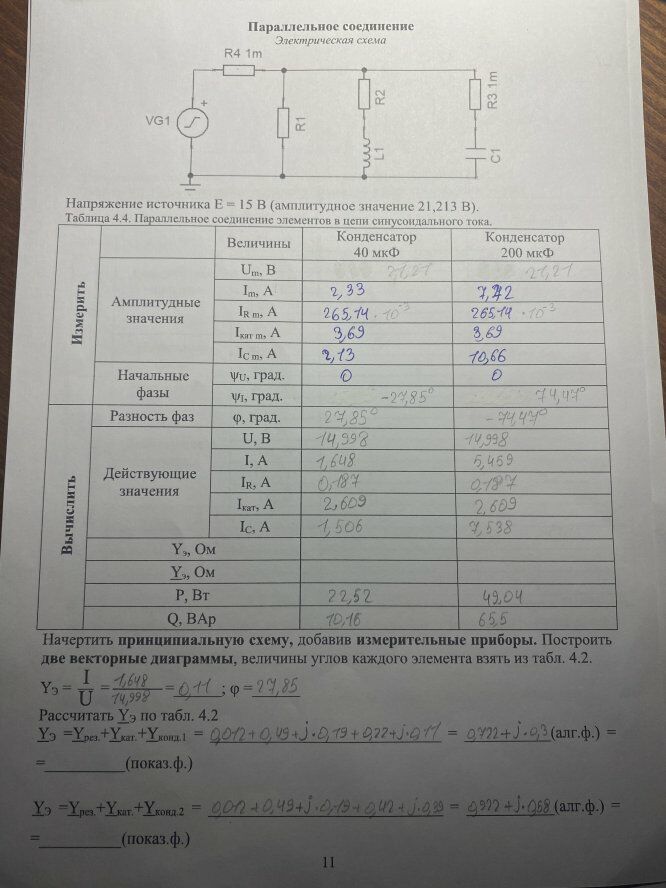 Параллельное соединение
Электрическая схема
R4 1m
VG1
+
R1
R2
L1
R3 1m
C1
Напряжение источника E = 15 В (амплитудное значение 21,213 В).
Таблица 4.4. Параллельное соединение элементов в цепи синусоидального тока.
Величины Конденсатор 40 мкФ Конденсатор 200 мкФ
Измерить
Амплитудные значения
Um, В 21,21 21,21
Im, А 2,33 7,72
IR m, А 265,14 · 10⁻³ 265,14 · 10⁻³
Iкат m, А 3,69 3,69
IC m, А 2,13 10,66
Начальные фазы
ψU, град. 0 0
ψI, град. -27,85° 74,47°
Вычислить
Разность фаз φ, град. 27,85° -74,47°
Действующие значения
U, В 14,998 14,998
I, А 1,648 5,459
IR, А 0,187 0,187
Iкат, А 2,609 2,609
IC, А 1,506 7,538
Yэ, Ом
Yэ, Ом
P, Вт 22,52 49,04
Q, ВАр 10,16 65,5
Начертить принципиальную схему, добавив измерительные приборы. Построить
две векторные диаграммы, величины углов каждого элемента взять из табл. 4.2.
Yэ = I/U = 1,648/14,998 = 0,11 ; φ = 27,85
Рассчитать Yэ по табл. 4.2
Yэ =Yрез.+Yкат.+Yконд.1 = 0,012+0,49+j·0,19+0,22+j·0,11 = 0,722+j·0,3 (алг.ф.) =
=__________(показ.ф.)
Yэ =Yрез.+Yкат.+Yконд.2 = 0,012+0,49+j·0,19+0,42+j·0,39 = 0,922+j·0,68 (алг.ф.) =
=__________(показ.ф.)
11